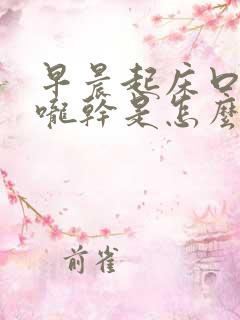 早晨起床口
嚨幹是怎麼
前雀